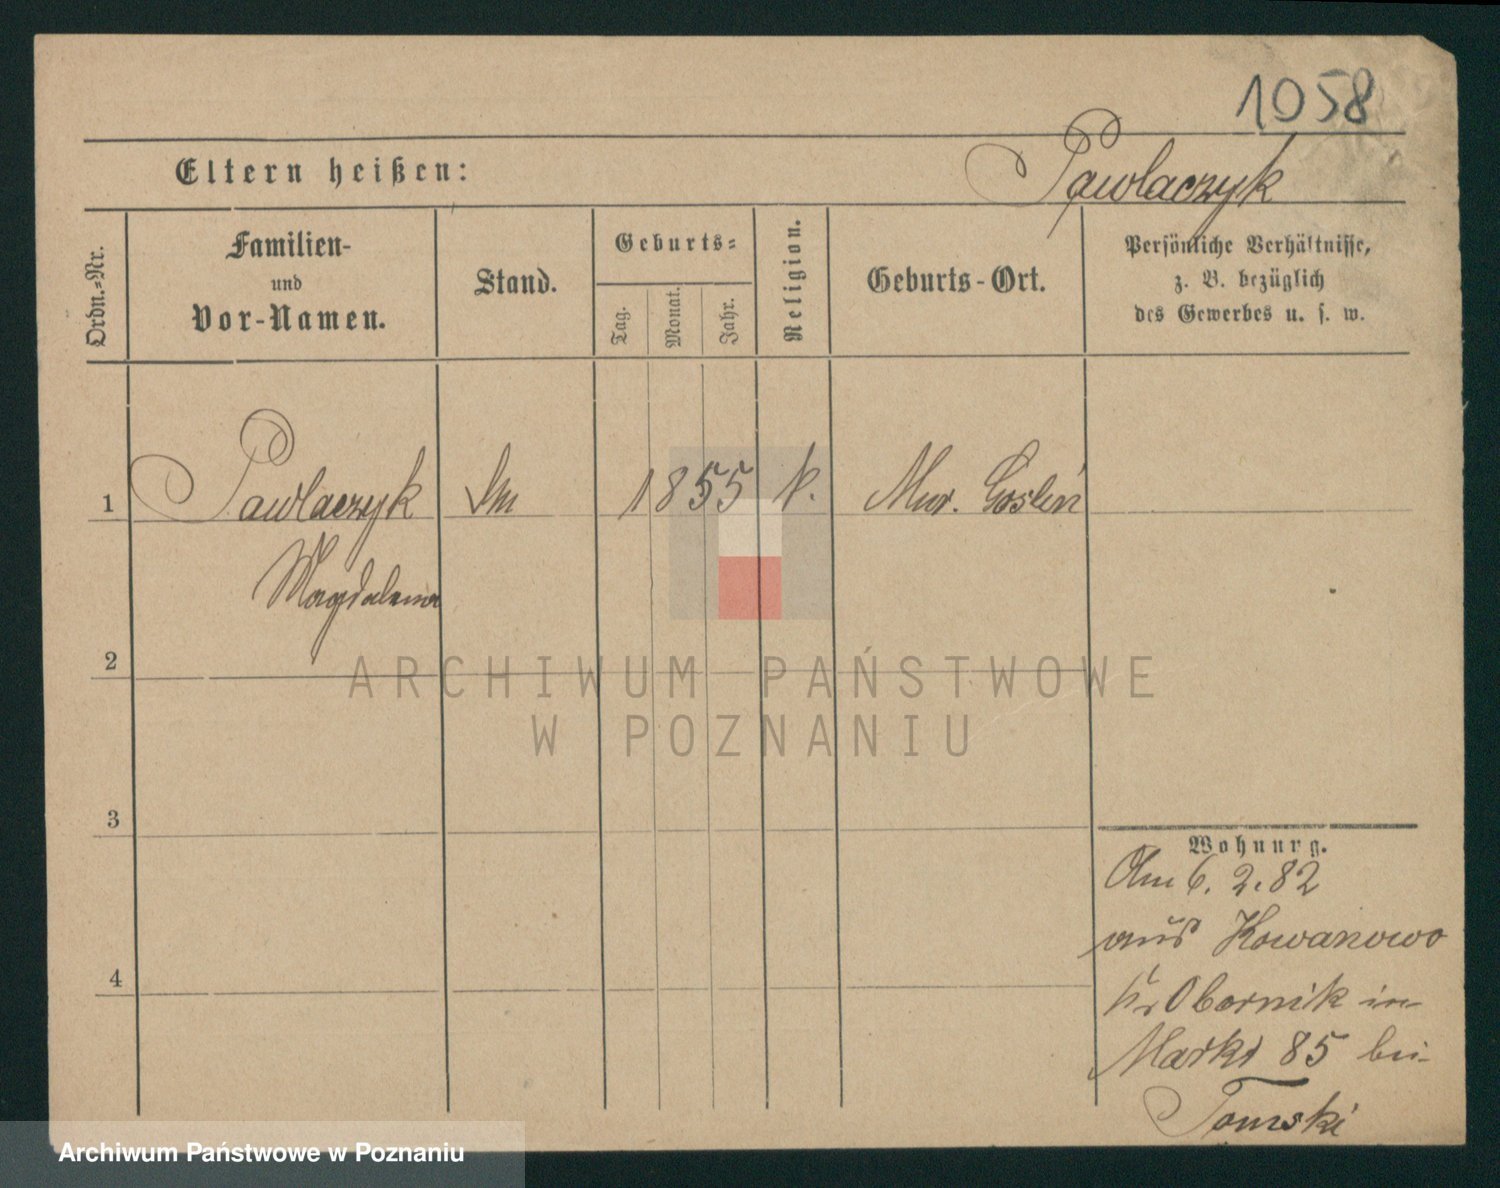 1058
Eltern heißen: Pawlaczyk
Ordn.-Nr.
Familien-
und
Vor-Namen.
Stand.
Geburts-
Tag.
Monat.
Jahr.
Religion.
Geburts-Ort.
Persönliche Verhältnisse,
z. B. bezüglich
des Gewerbes u. s. w.
1 Pawlaczyk 1855 k. Mur. Goslin
Magdalena
2
ARCHIWUM PAŃSTWOWE
W POZNANIU
3
Wohnung.
Am 6. 2. 82
aus Kowanowo
Kr Obornik in
Markt 85 bei
Tomski
4
Archiwum Państwowe w Poznaniu